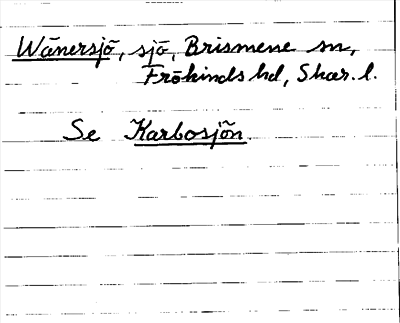 Wänersjö, sjö, Brismene sn,
Frökinds hd, Skar. l.
Se Karbosjön.